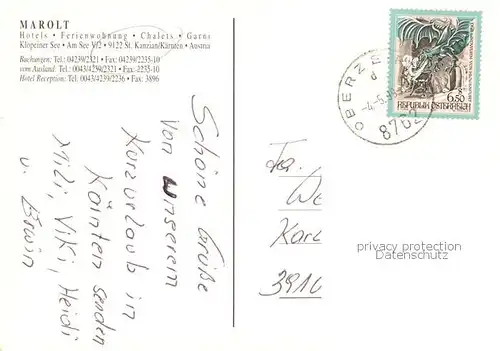 MAROLT
Hotels • Ferienwohnung • Chalets • Garns
Klopeiner See • Am See V/2 • 9122 St. Kanzian/Kärnten • Austria
Buchungen: Tel.: 04239/2321 • Fax: 04239/2235-10
vom Ausland: Tel.: 0043/4239/2321 • Fax: 2235-10
Hotel Reception: Tel.: 0043/4239/2236 • Fax: 3896
Schöne Grüße
von unserem
Kurzurlaub in
Kärnten senden
Mili, Viki, Heidi
u. Erwin
6.50
REPUBLIK ÖSTERREICH
OBERZE
d
8762
Fa.
We
Karl
3910
privacy protection
Datenschutz